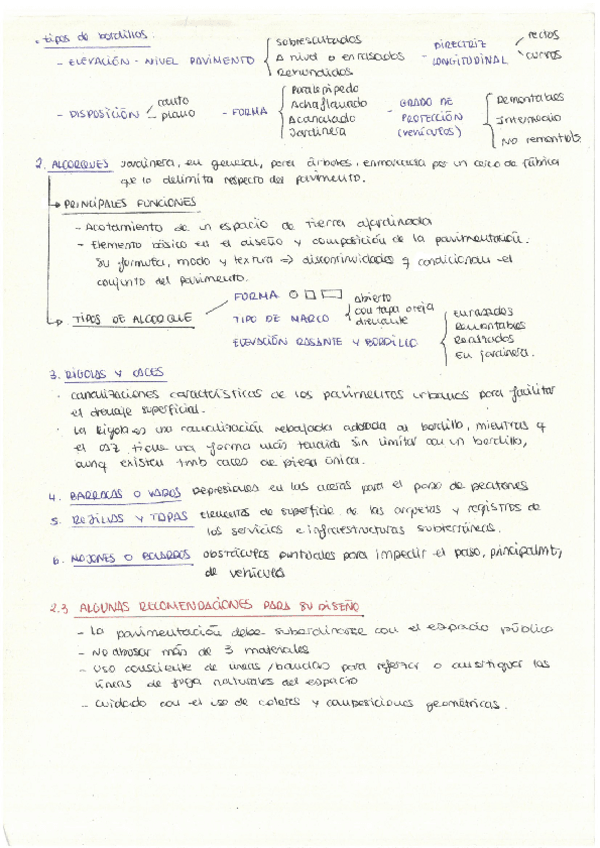 . tipos de bordillos.
- ELEVACIÓN - NIVEL PAVIMENTO { sobresaltados
A nivel o enrasados
Rehundidos
- DIRECTRIZ LONGITUDINAL < rectos
curvos
- DISPOSICIÓN < canto
plano
- FORMA { Paralepípedo
Achaflanado
Acanalado
Jardinera
- GRADO DE PROTECCIÓN (vehículos) { Remontables
Intermedio
No remontbls
2. ALCORQUES Jardinera, en general, para árboles, enmarcada por un cerco de fábrica
que lo delimita respecto del pavimento.
PRINCIPALES FUNCIONES
- Acotamiento de un espacio de tierra ajardinada
- Elemento básico en el diseño y composición de la pavimentación.
Su formata, modo y textura => discontinuidades q condicionan el
conjunto del pavimento.
TIPOS DE ALCORQUE
FORMA
TIPO DE MARCO { abierto
con tapa oreja
drenante
ELEVACIÓN RASANTE Y BORDILLO { enrasados
Remontables
Resaltados
En jardinera.
3. RIGOLAS Y CACES
· canalizaciones características de los pavimentos urbanos para facilitar
el drenaje superficial.
· La Rigola es una canalización rebajada adosada al bordillo, mientras q
el caz tiene una forma más tendida sin limitar con un bordillo,
aunq existen tmb caces de pieza única.
4. BARBACAS O VADOS Depresiones en las aceras para el paso de peatones
5. REJILLAS Y TAPAS elementos de superficie de las arquetas y registros de
los servicios e infraestructuras subterráneas.
6. MOJONES O BOLARDOS obstáculos puntuales para impedir el paso, principalmt,
de vehículos
2.3 ALGUNAS RECOMENDACIONES PARA SU DISEÑO
- La pavimentación debe subordinarse con el espacio público
- No abusar más de 3 materiales
- Uso consciente de líneas/bandas para reforzar o amortiguar las
líneas de fuga naturales del espacio
- Cuidado con el uso de colores y composiciones geométricas.